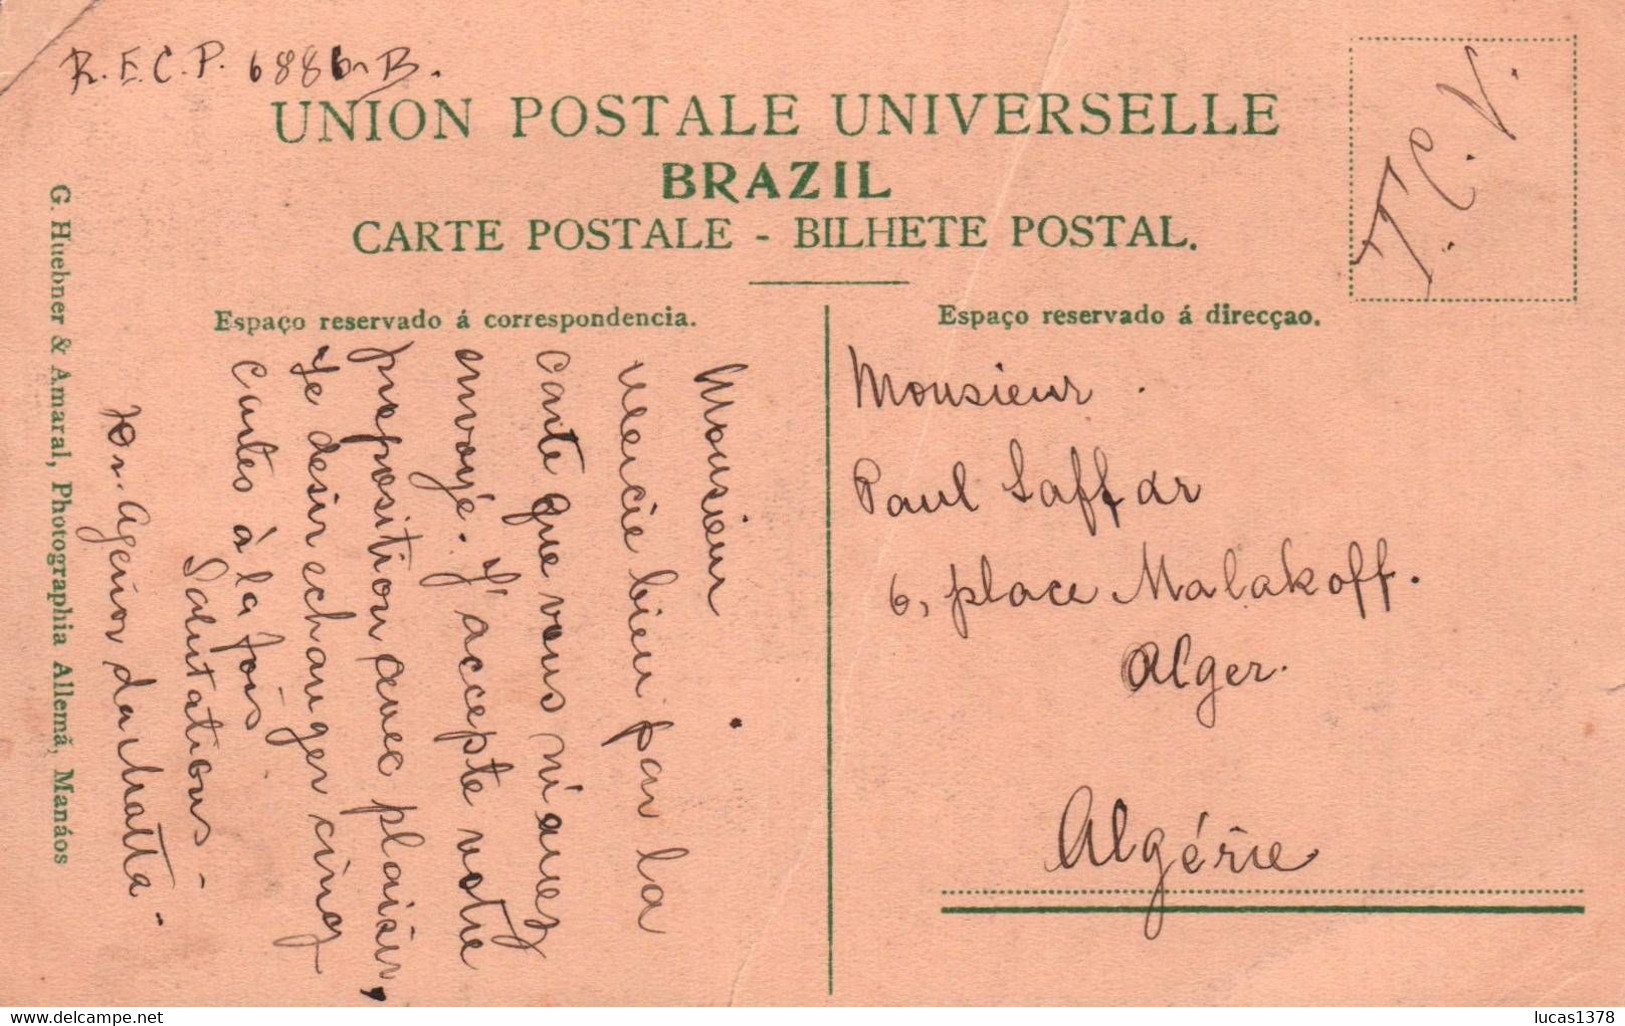 R. E. C. P. 6886 B.
T. C. V.
UNION POSTALE UNIVERSELLE
BRAZIL
CARTE POSTALE - BILHETE POSTAL.
Espaço reservado á correspondencia.
Espaço reservado á direcçao.
Monsieur
Mercie bien par la
carte que vous m'avez
envoyé. J'accepte votre
proposition avec plaisir,
Je desir echanger cinq
cartes à la fois
Salutations -
Dr. Agenor da Matta -
Monsieur
Paul Saffar
6, place Malakoff.
Alger.
Algérie
G. Huebner & Amaral, Photographia Allemã, Manáos
delcampe.net
lucas1378